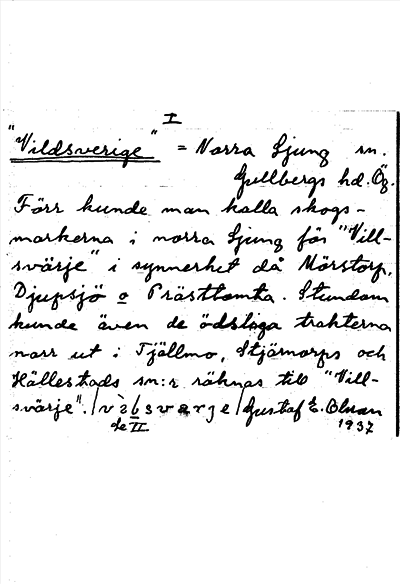 I
"Vildsverige" = Norra Ljung sn.
Gullbergs hd. Ög.
Förr kunde man kalla skogs-
markerna i norra Ljung för "Vill-
svärje" i synnerhet då Mörstorp,
Djupsjö o Prästtomta. Stundom
kunde även de ödsliga trakterna
norr ut i Tjällmo, Stjärnorps och
Hällestads sn:r räknas till "Vill-
svärje". Gustaf E. Olman
1937